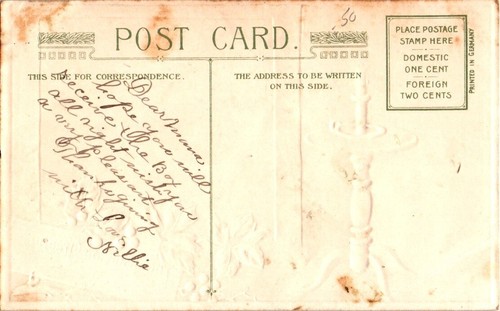 .50
POST CARD.
THIS SIDE FOR CORRESPONDENCE.
THE ADDRESS TO BE WRITTEN
ON THIS SIDE.
PLACE POSTAGE
STAMP HERE
DOMESTIC
ONE CENT
FOREIGN
TWO CENTS
PRINTED IN GERMANY
Dear
hope you will
receive the Box
all right wish you
a very pleasant
Thanksgiving
with Love
Nillie